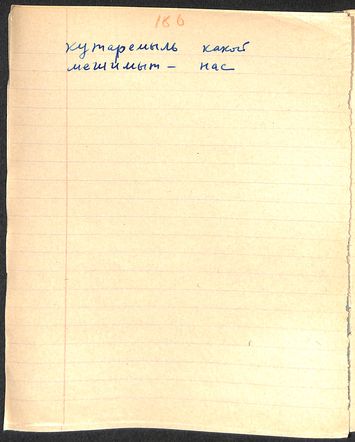 186
кутаремыль какой
мешимыт – нас